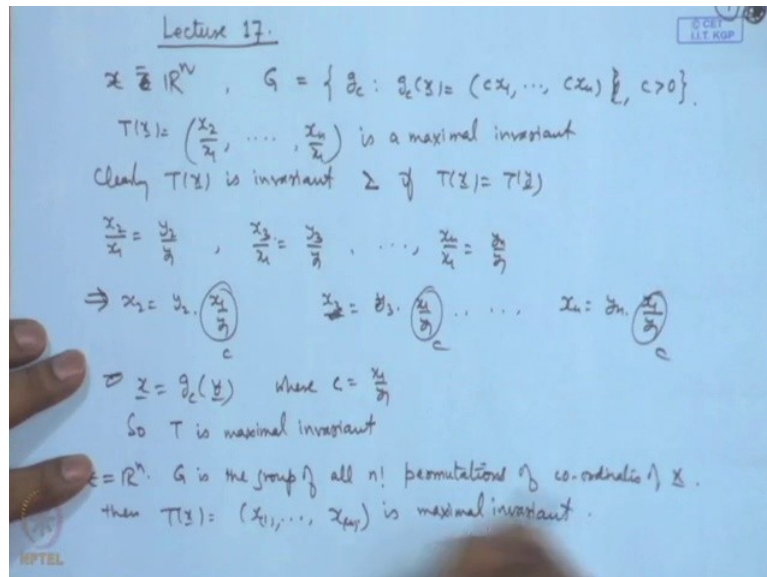 Lecture 17.
© CET
I.I.T. KGP
x = ℝⁿ, G = { g_c : g_c(x) = (cx₁, ..., cxₙ), c>0}.
T(x) = (x₂/x₁, ...., xₙ/x₁) is a maximal invariant
Clearly T(x) is invariant & if T(x) = T(y)
x₂/x₁ = y₂/y₁, x₃/x₁ = y₃/y₁, ..., xₙ/x₁ = yₙ/y₁
⇒ x₂ = y₂ · x₁/y₁ x₃ = y₃ · x₁/y₁ .. ... xₙ = yₙ · x₁/y₁
c c c
x = g_c(y) where c = x₁/y₁
So T is maximal invariant
= ℝⁿ. G is the group of all n! permutations of co-ordinates of x.
then T(x) = (x₍₁₎, ..., x₍ₙ₎) is maximal invariant.
NPTEL